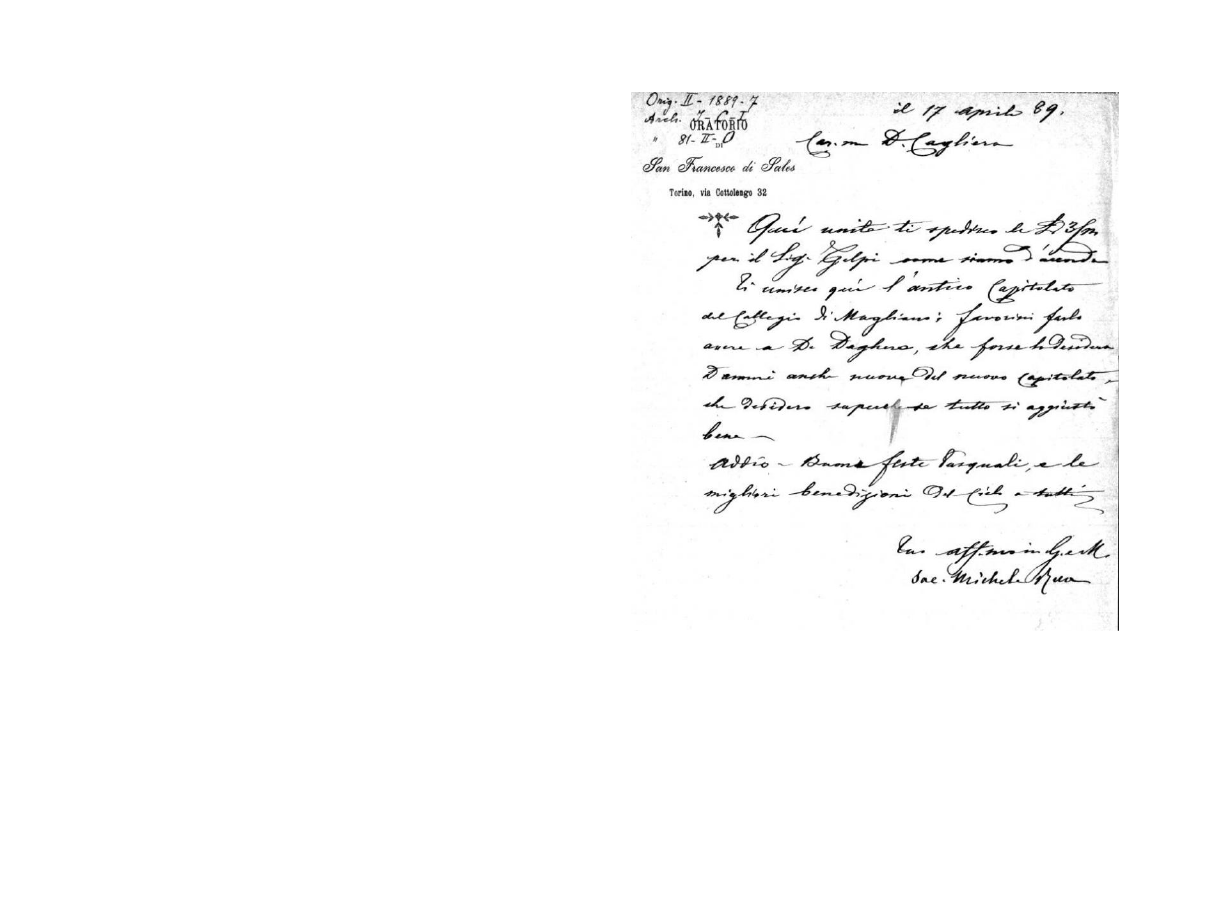 Orig. II - 1889 - 7
Arch.
ORATORIO
" 81 - II - O
DI
San Francesco di Sales
Torino, via Cottolengo 32
il 17 aprile 89.
Car.mo D. Cagliero
Quì unite ti spedisco le L. 3/m
per il Sig. Gelpi come siamo d'accordo
Ti unisco quì l'antico Capitolato
del Collegio di Magliano; favorirai farlo
avere a D. Daghero, che forse lo desidera
Dammi anche nuova del nuovo capitolato,
che desidero sapere se tutto si aggiustò
bene —
Addio - Buone feste Pasquali, e le
migliori benedizioni del Cielo a tutti
Tuo aff.mo in G. e M.
Sac. Michele Rua